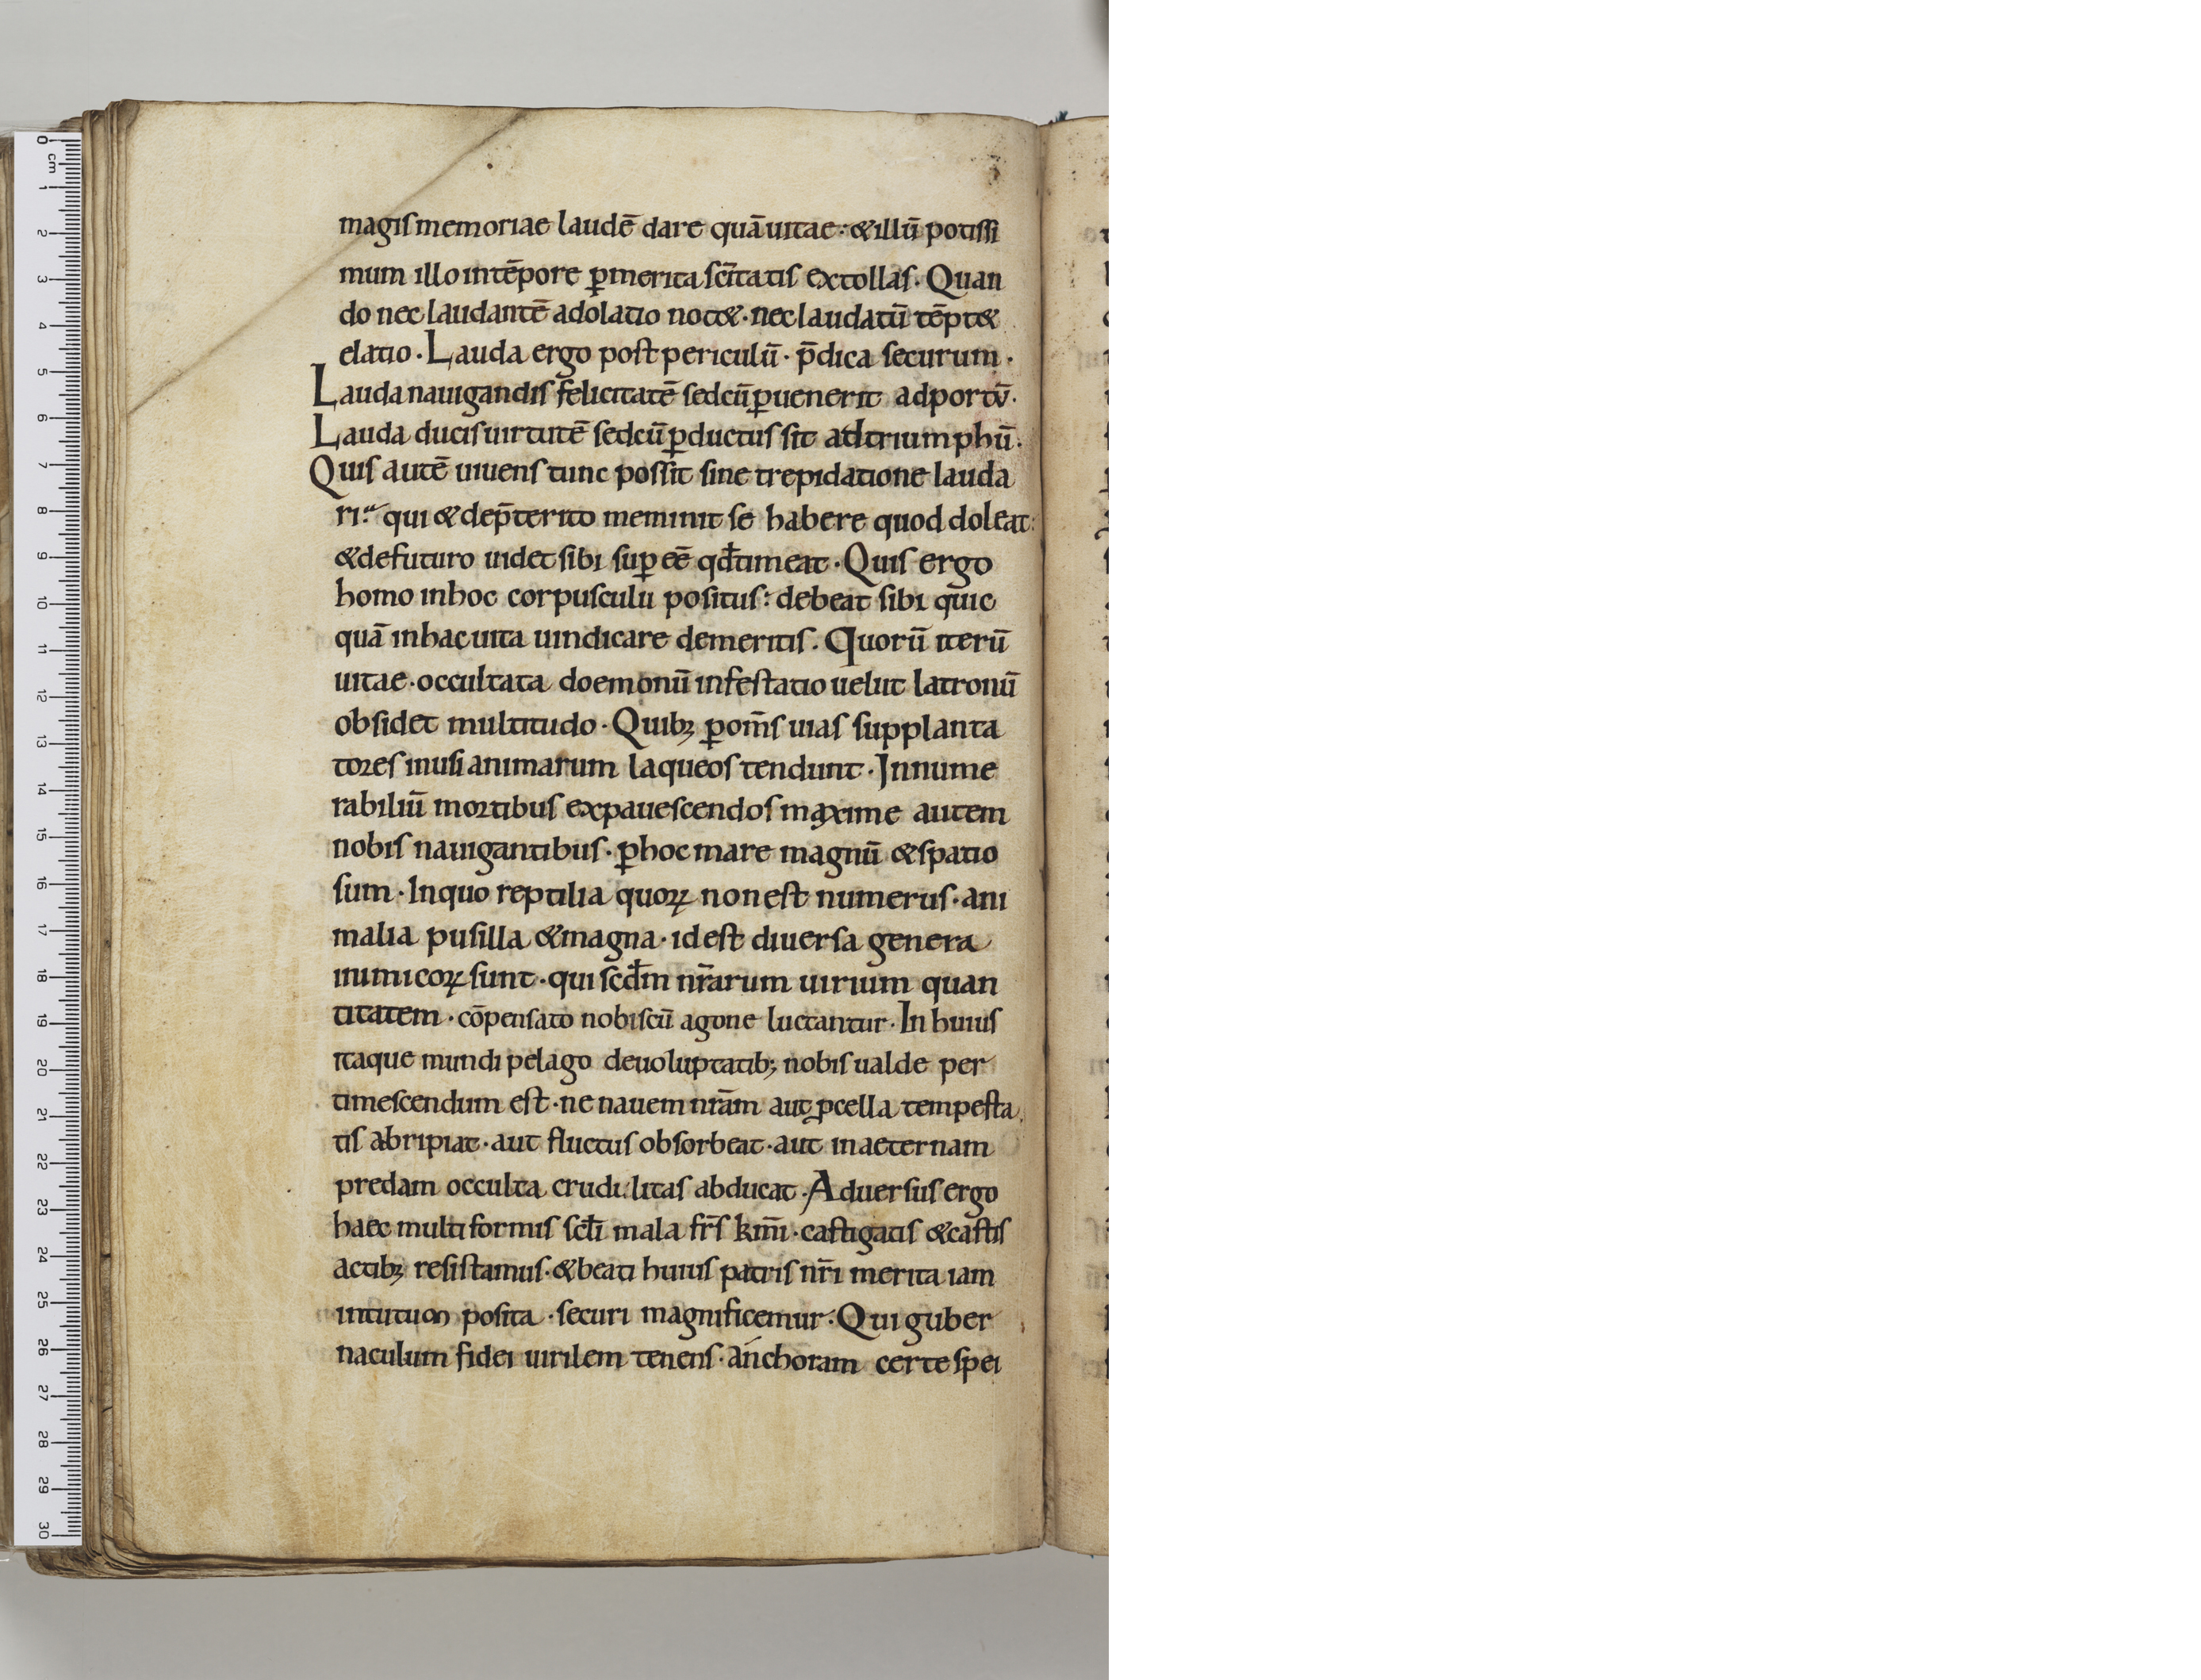 magis memoriae laudē dare quā uitae· & illū potissi
mum illo in tēpore ꝑ merita scītatis extollas· Quan
do nec laudantē adolatio noc&· nec laudatū tēpt&
elatio· Lauda ergo post periculū· p̄dica securum·
Lauda nauigandis felicitatē sed cū ꝑuenerit ad portū·
Lauda ducis uirtutē sed cū ꝑductus sit ad triumphū·
Quis autē uiuens tunc possit sine trepidatione lauda
ri· qui & de p̄terito meminit se habere quod doleat:
& de futuro uidet sibi suꝑ eē qđ timeat· Quis ergo
homo in hoc corpusculu positus: debeat sibi quic
quā in hac uita uindicare de meritis· Quorū iterū
uitae· occultata doemonū infestatio uelut latronū
obsidet multitudo· Quibꝫ ꝑ om̄s uias supplanta
tores inuisi animarum laqueos tendunt· Innume
rabiliū mortibus expauescendos maxime autem
nobis nauigantibus· ꝑ hoc mare magnū & spatio
sum· In quo reptilia quoꝝ non est numerus· ani
malia pusilla & magna· id est diuersa genera
inimicoꝝ sunt· qui scđm nr̄arum uirium quan
titatem· cōpensato nobiscū agone luctantur· In huius
itaque mundi pelago de uoluptatib; nobis ualde per
timescendum est· ne nauem nr̄am aut ꝓcella tempesta
tis abripiat· aut fluctus obsorbeat· aut in aeternam
predam occulta crudilitas abducat· Aduersus ergo
haec multiformis scłi mala fr̄s km̄i· castigatis & castis
actibꝫ resistamus· & beati huius patris nr̄i merita iam
in tutuon posita· securi magnificemur· Qui guber
naculum fidei uirilem tenens· anchoram certe spei